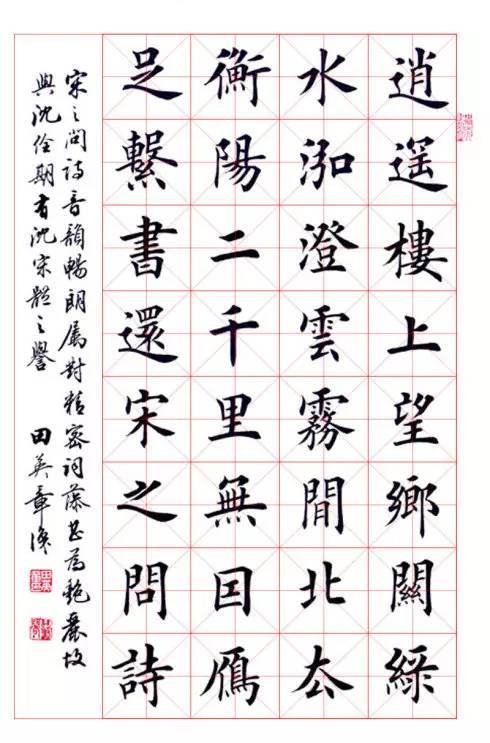 逍遥樓上望鄉關綠
水泓澄雲霧閒北去
衡陽二千里無囙雁
足繫書還宋之問詩
宋之问诗音韻暢朗属對精密词藻甚为艳麗故
與沈佺期有沈宋體之譽 田英章漢